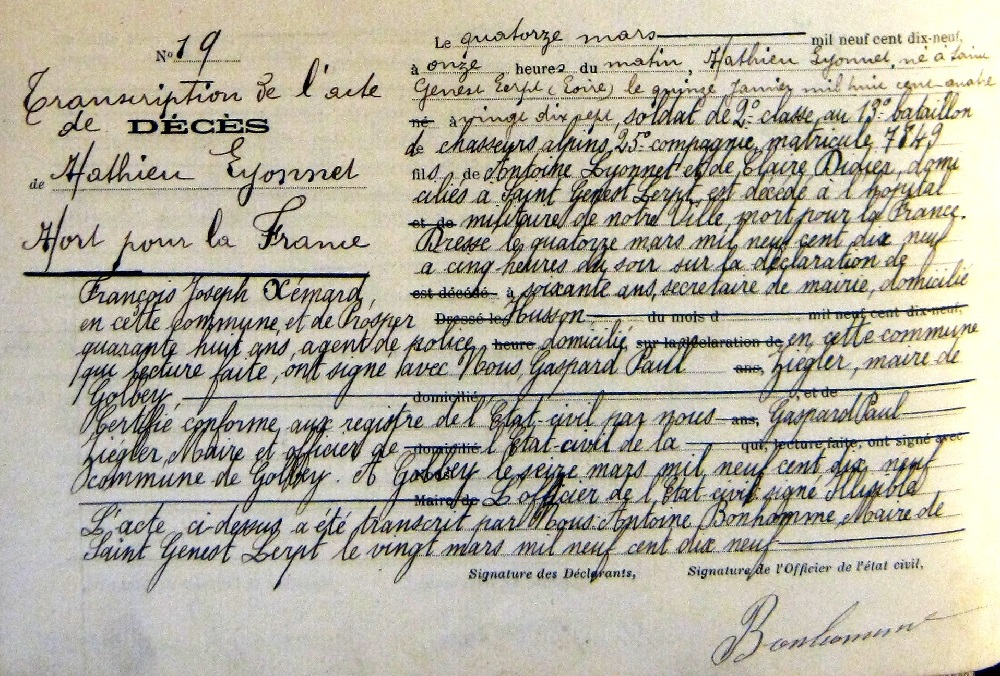 N° 19
Transcription de l'acte
de DÉCÈS
de Mathieu Lyonnet
Mort pour la France
Le quatorze mars mil neuf cent dix-neuf,
à onze heures du matin, Mathieu Lyonnet, né à Saint
Genest Lerpt (Loire) le quinze Janvier mil huit cent quatre
né à vingt dix sept, soldat de 2e classe, au 13e bataillon
de chasseurs alpins, 25e compagnie, matricule 7849
fils de Antoine Lyonnet et de Claire Didier, domi
ciliés à Saint Genest Lerpt, est décédé à l'hopital
et de militaire de notre Ville, mort pour la France.
Dressé le quatorze mars mil neuf cent dix neuf
a cinq heures du soir sur la déclaration de
François Joseph Xémard, est décédé à soixante ans, secrétaire de mairie, domicilié
en cette commune, et de Prosper Dressé le Husson du mois d mil neuf cent dix-neuf,
quarante huit ans, agent de police, heure domicilié sur la déclaration de en cette commune
qui lecture faite, ont signé avec Nous, Gaspard Paul ans, Ziégler, maire de
Golbey domicilié , et de
Certifié conforme aux registre de l'Etat-civil par nous ans, Gaspard Paul
Ziégler, Maire et officier de domicilié l'Etat-civil de la qui, lecture faite, ont signé avec
commune de Golbey. A Golbey le seize mars mil neuf cent dix neuf
Maire de L'officier de l'Etat civil signé Illisible
L'acte ci-dessus a été transcrit par Nous Antoine Bonhomme, Maire de
Saint Genest Lerpt le vingt mars mil neuf cent dix neuf
Signature des Déclarants, Signature de l'Officier de l'état civil,
Bonhomme